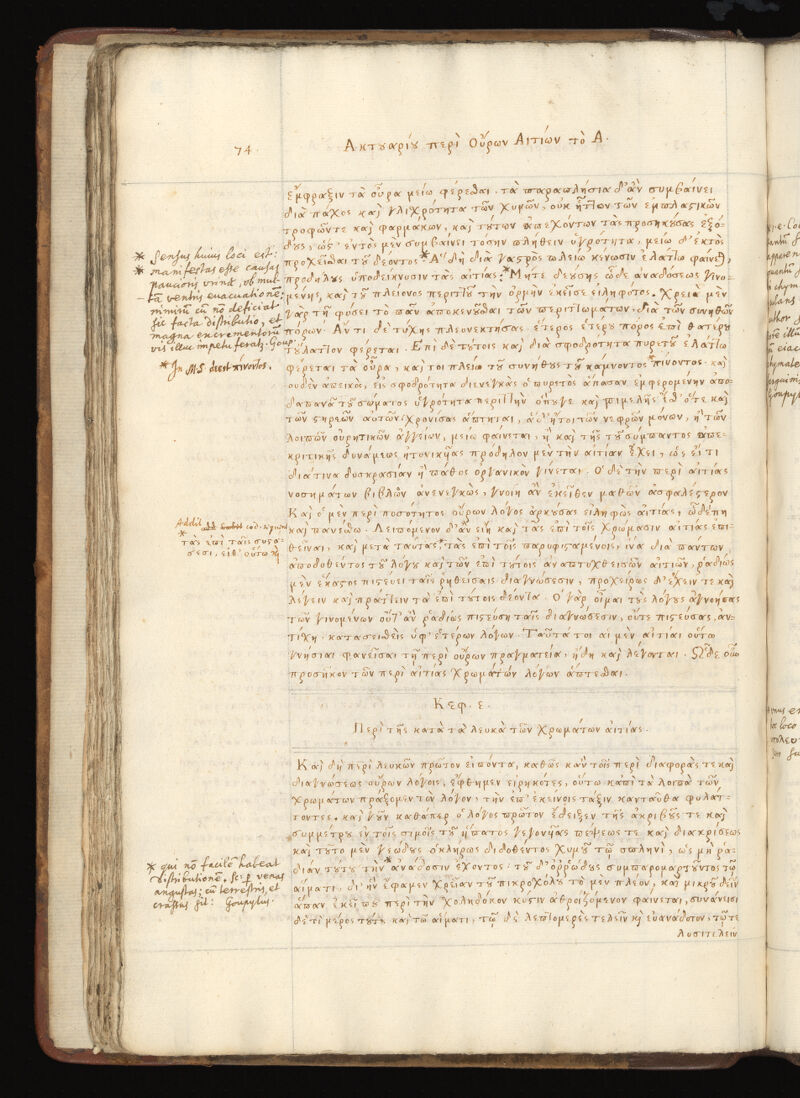 74.
Ακτουαρίου περὶ Οὔρων Αἰτίων τὸ Α.
ἔμφραξιν τὰ οὖρα μείω φέρεσθαι. τὰ παραπλήσια δ' ἂν συμβαίνει
διὰ πάχος καὶ γλισχρότητα τῶν χυμῶν, οὐκ ἧττον τῶν ἐμπλαστικῶν
τροφῶν τε καὶ φαρμάκων, καὶ τούτων ἀπεχόντων τὰς προσηκούσας ἐξό-
δους, ὡς ἐντὸς μὲν συμβαίνει τοσην πληθειν ὑγρότητα, μείω δ' ἐκτὸς
προχεῖσθαι τοῦ δέοντος * Α' δὴ διὰ γαστρὸς πλείω κένωσιν ἐλάττω φαίνεται,
προδήλους ὑποδείκνυσιν τὰς αἰτίας: Μήτε δεύσης ὧδε ἀναδόσεως γινο-
μένης, καὶ τοῦ πλείονος περιττοῦ τὴν ὁρμὴν ἐκεῖσε εἰληφότος. Χρεία μὲν
γὰρ τῇ φύσει τὸ πᾶν ἀποκενῶσαι τῶν περιττωμάτων, διὰ τῶν συνηθῶν
πόρων. Αν τι δὲ τύχης πλεονεκτήσας ἕτερος ἑτέρου πόρος ἐπὶ θατέρου
τοὔλαττον φέρεται. Επὶ δὲ τούτοις καὶ διὰ σφοδρότητα πυρετοῦ ἐλάττω
φέρεται τὰ οὖρα, καί τοι πλείω τοῦ συνήθους τοῦ κάμνοντος * πίνοντος. καὶ
οὐδὲν ἀπεικὸς, εἰς σφοδρότητα διενεγκὼς ὁ πυρετὸς ἅπασαν ἐμφερομένην ἀπο-
δαπανᾶ τοῦ σώματος ὑγρότητα περιττὴν ὅπουγε καὶ πιμελῆς ἔσθ' ὅτε καὶ
τῶν στερεῶν αὐτῶν χρονίσας ἅπτηται, ἀδ' ἤτοι τῶν νεφρῶν μόνων, ἢ τῶν
λοιπῶν οὐρητικῶν ἀγγείων, μείω φαίνεται, ἢ καὶ τῆς τοῦ σύμπαντος ἀπε-
κριτικῆς δυνάμεως ἠτονικυίας πρόδηλον μὲν τὴν αἰτίαν ἔχει, ὡς εἴ τι
διά τινα δυσκρασίαν ἢ πάθος ὀργανικὸν γίνεται. Ο' δὲ τὴν περὶ αἰτίας
νοσημάτων βιβλὸν ἀνενεγκὼς, γνοίη ἂν ἐκεῖθεν μαθὼν ἀσφαλέστερον
Καὶ ὁ μὲν περὶ ποσότητος οὔρων λόγος ἀρκούσας εἰληφὼς αἰτίας, ὧδέ πη
καὶ πανέσθω. Λειπόμενον δ' ἂν εἴη καὶ τὰς ἐπὶ τοῖς χρώμασιν αἰτίας ἐπι-
θεῖναι, καὶ μετὰ ταύτας * τὰς ἐπὶ τοῖς παρυφισταμένοις, ἵνα διὰ πάντων
ἀποδοθέντος τοῦ λόγου καὶ τῶν ἐπὶ τούτοις ἀναπτυχθεισῶν αἰτιῶν, ῥαδίως
μὲν ἕκαστος πιστεύει ταῖς ῥηθείσαις διαγνώσεσιν, προχείρως δ' ἔχειν τε καὶ
λέγειν καὶ πράττειν τὰ ἐπὶ τούτοις δέοντα. Ο' γὰρ οἶμαι τοὺς λόγους ἀγνοήσας
τῶν γινομένων οὔτ' ἂν ῥαδίως πιστεύσῃ ταῖς διαγνώσεσιν, οὔτε πιστεύσας, ἂν-
τίχῃ. κατασεισθεὶς ὑφ' ἑτέρων λόγων. Ταῦτά τοι αἱ μὲν αἰτίαι οὕτω
γνήσιαι φανεῖσαι τῇ περὶ οὔρων πραγματείᾳ, ἤδη καὶ λέγονται. Ωδε οὖν
προσῆκον τῶν περὶ αἰτίας χρωμάτων λόγων ἅπτεσθαι.
Κεφ. ε.
Περὶ τῆς κατὰ τὰ λευκὰ τῶν Χρωμάτων αἰτίας.
Καὶ δὴ περὶ λευκῶν πρῶτον εἰπόντα, καθὼς κἂν τοῖς περὶ διαφορᾶς τε καὶ
διαγνώσεως οὔρων λόγοις, ἔφθημεν εἰρηκότες, οὕτω κἀπὶ τὰ λοιπὰ τῶν
χρωμάτων πράξομεν τὸν λόγον, τὴν ἐπ' ἐκείνοις τάξιν κἀνταῦθα φυλάτ-
τοντες. καὶ γοῦν καθάπερ ὁ λόγος πρῶτον ἔδειξεν τῆς ἀκριβοῦς τε καὶ
συμμέτρου ἐν τοῖς σιμοῖς τοῦ ἥπατος γεγονυίας πέψεώς τε καὶ διακρίσεως
καὶ τοῦτο μὲν γεώδους ὁκλήρως διδοθέντος χυμοῦ τῷ σπληνὶ, ὡς μὴ ρα-
δίαν τούτου τὴν * ἀνάδοσιν ἔχοντος, τοῦ δ' ὀῤῥώδους συμπαρομαρτοῦντος τῷ
αἵματι, δι' ἣν ἔφαμεν χρείαν τοῦ πικροχόλου τὸ μὲν πλέον, καὶ μικροῦ δεῖν
ἅπαν ἐκεῖ που περὶ τὴν χοληδόκον κύστιν ἀθροιζόμενον φαίνεται, συνάνεισι
δέ τι μέρος τούτου καὶ τῷ αἵματι, τῷ δὲ λεπτομερὲς τελεῖν κὶ εὐανάδοτον, τῷ τε
λυσιτελεῖν
* Sensus huius loci est:
* manifestas esse causas
paucioris urinæ, ob mul-
tā ventris evacuationē;
nimirū cū nō deficiat
sic facta distributio, et
magna excrementorū
vis illuc impetu feratr. Goup.
* In MS. deest πίνοντος.
Addit cod.
τὰς ἐπὶ ταῖς συστά-
σεσι, εἶθ' οὕτω κὶ
* qui nō facilē habeat
distributionē, sc. p venas
angustas; cū terrestris, et
crassus sit: Goupylus.